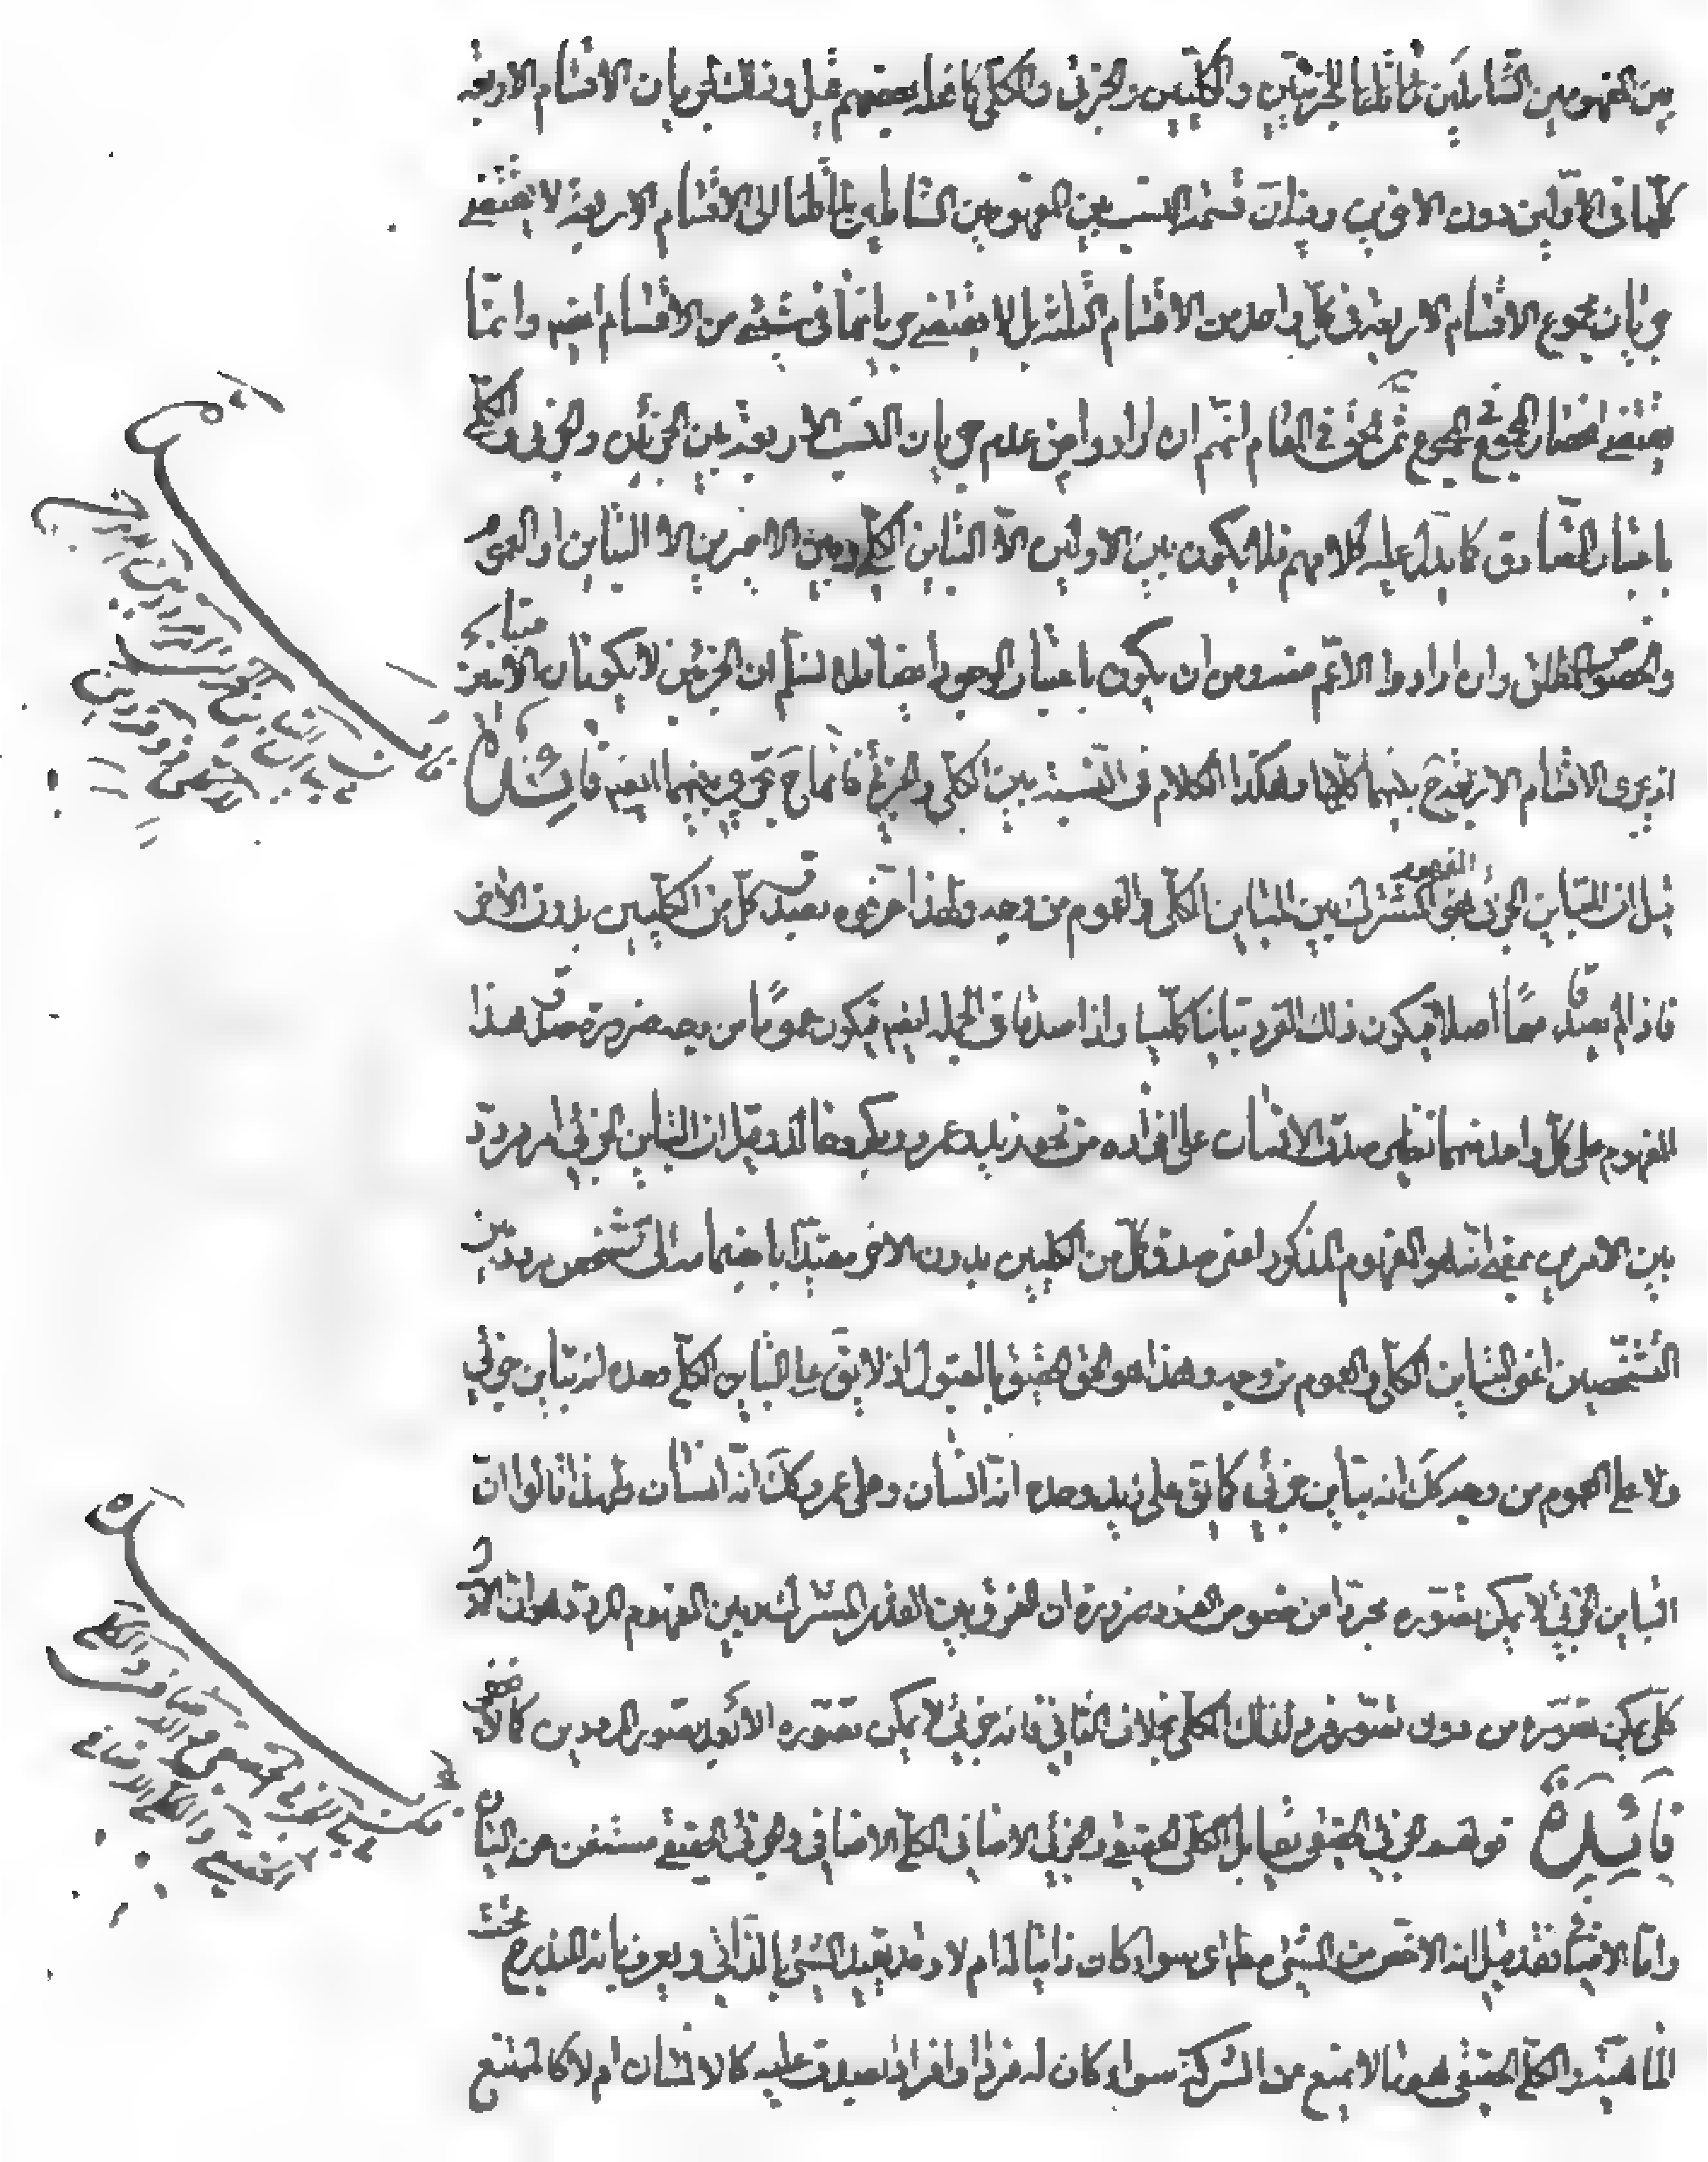 بين المفهومين الشاملين للجزئيين والكليين والجزئي والكلي كما فعله بعضهم قيل وذلك لجريان الاقسام الاربعة
كلها في الاولين دون الاخرين وفيه ان قسمة النسب بين المفهومين الشاملين لما قلنا الى الاقسام الاربعة لا يقتضي
جريان مجموع الاقسام الاربعة في كل واحد من الاقسام الثلثة بل لا يقتضي جريانها في شيئ من الاقسام ايضا وانما
يقتضي انحصار المجموع في المجموع ثم الحق في المقام انهم ان ارادوا من عدم جريان النسب الاربعة بين الجزئين والجزئي والكلي
باعتبار التصادق كما يدل عليه كلامهم فلا يكون بين الاولين الا التباين الكلي وبين الاخيرين الا التباين او العموم
والخصوص المطلق وان ارادوا الاعم منه ومن ان يكون باعتبار الوجود ايضا فلا نسلم ان الجزئين لا يكونان الا متباينين
اذ يجري الاقسام الاربعة ح بينهما كلها وهكذا الكلام في النسبة بين الكلي والجزئي فانها ح تجري بينهما ايضا فائدة
قيل ان التباين الجزئي هو المفهوم المشترك بين التباين الكلي والعموم من وجه ولهذا عرفوه بصدق كل من الكليين بدون الاخر
فاذا لم يصدقا معا اصلا فيكون ذلك الفرد تباينا كليا واذا صدقا في الجملة ايضا فيكون عموما من وجه ضرورة صدق هذا
المفهوم على كل واحد منهما نظير صدق الانسان على افراده من نحو زيد وعمرو وبكر وخالد وقيل ان التباين الجزئي امر مردد
بين الامرين بمعنى انه هو المفهوم المذكور اعني صدق كل من الكليين بدون الاخر مقيدا بانضمامه الى تشخص مردد بين
التشخصين اعني التباين الكلي والعموم من وجه وهذا هو الحق الحقيق بالقبول اذ لا يق على التباين الكلي وحده انه تباين جزئي
ولا على العموم من وجه كك انه تباين جزئي كما يق على زيد وحده انه انسان وعلى عمرو كك انه انسان ولهذا قالوا ان
التباين الجزئي لا يمكن تصوره مجردا من خصوص الفرد ضرورة ان الفرق بين القدر المشترك وبين المفهوم المردد هو ان الاول
كلي يمكن تصوره من دون تصور فرد لذلك الكلي بخلاف الثاني فانه جزئي لا يمكن تصوره الا بعد تصور المرددين كما لا يخفى
فائدة قولهم الجزئي الحقيقي يقابل الكلي الحقيقي والجزئي الاضافي الكلي الاضافي والجزئي الحقيقي مستغن عن البيان
واما الاضافي فقد قيل انه الاخص من الشيئ مط اي سواء كان ذاتيا له ام لا وقد يقيد الشيئ بالذاتي ويعرف بانه المندرج تحت
الماهية والكلي الحقيقي هو ما لا يمنع من الشركة سواء كان له فرد او افراد يصدق عليه كالانسان ام لا كالممتنع